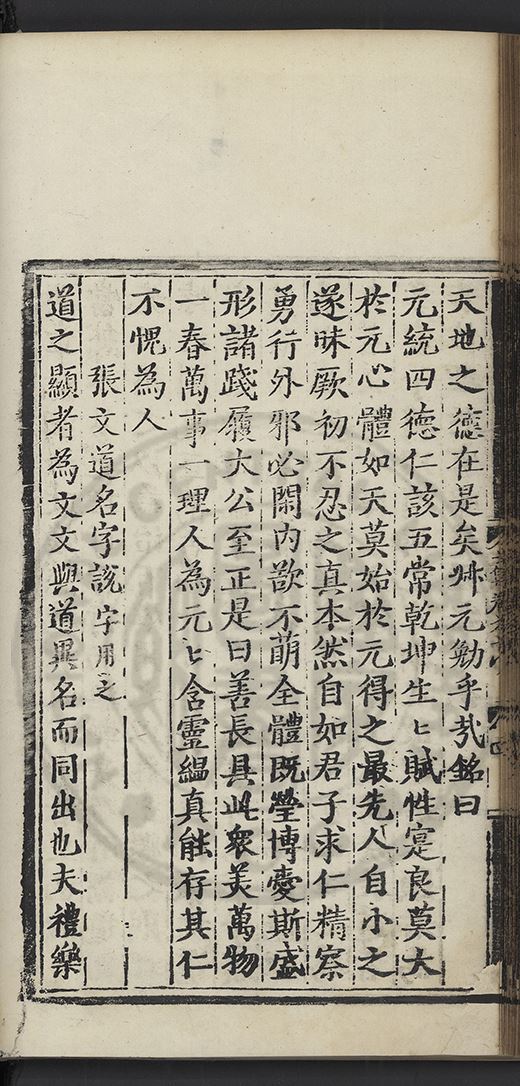 天地之德在是矣卅元勉乎㢤銘曰
元統四德仁該五常乾坤生〻賦性寔良莫大
於元心體如天莫始於元得之最先人自小之
遂昧厥初不忍之真本然自如君子求仁精察
勇行外邪必閑内欲不萌全體既瑩博愛斯盛
形諸踐履大公至正是曰善長具此衆美萬物
一春萬事一理人為元〻含靈緼真能存其仁
不愧為人
張文道名字說字用之
道之顯者為文文與道異名而同出也夫禮樂